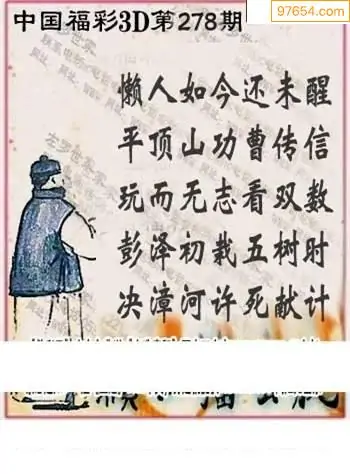 97654.com
中国福彩3D第278期
懒人如今还未醒
平顶山功曹传信
玩而无志看双数
彭泽初栽五树时
决漳河许死献计